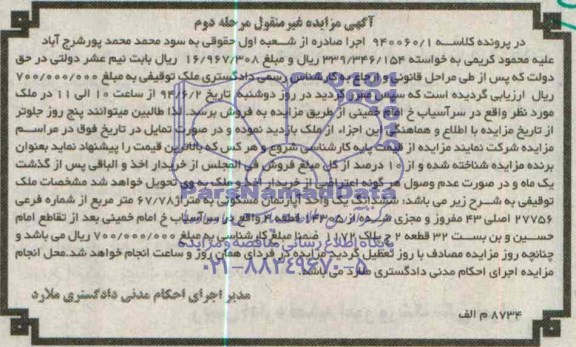 آگهی مزایده غیر منقول مرحله دوم
در پرونده کلاسه ۹۴۰۰۶۰/۱ اجرا صادره از شعبه اول حقوقی به سود محمد محمد پورشرج آباد
علیه محمود کریمی به خواسته ۳۳۹/۳۴۶/۱۵۴ ریال و مبلغ ۱۶/۹۶۷/۳۰۸ ریال بابت نیم عشر دولتی در حق
دولت که پس از طی مراحل قانونی و ارجاع به کارشناس رسمی دادگستری ملک توقیفی به مبلغ ۷۰۰/۰۰۰/۰۰۰
ریال ارزیابی گردیده است که سپس مقرر گردید در روز دوشنبه تاریخ ۹۴/۶/۲ از ساعت ۱۰ الی ۱۱ در ملک
مورد نظر واقع در سرآسیاب خ امام خمینی از طریق مزایده به فروش برسد. لذا طالبین میتوانند پنج روز جلوتر
از تاریخ مزایده با اطلاع و هماهنگی این اجراء از ملک بازدید نموده و در صورت تمایل در تاریخ فوق در مراسم
مزایده شرکت نمایند مزایده از قیمت پایه کارشناسی شروع و هر کس که بالاترین قیمت را پیشنهاد نماید بعنوان
برنده مزایده شناخته شده و از ۱۰ درصد از کل مبلغ فروش فی المجلس از خریدار اخذ و الباقی پس از گذشت
یک ماه و در صورت عدم وصول هر گونه اعتراضی از خریدار اخذ و ملک به وی تحویل خواهد شد مشخصات ملک
توقیفی به شرح زیر می باشد: ششدانگ یک واحد آپارتمان مسکونی به متراژ ۶۷/۷۸ متر مربع از شماره فرعی
۲۷۷۵۶ اصلی ۴۳ مفروز و مجزی شده از ۱۴۳۰۵ قطعه ۴ واقع در سرآسیاب خ امام خمینی بعد از تقاطع امام
حسین و بن بست ۳۲ قطعه ۲ ج پلاک ۱۱۷۲ ضمنا مبلغ کارشناسی به مبلغ ۷۰۰/۰۰۰/۰۰۰ ریال می باشد و
چنانچه روز مزایده مصادف با روز تعطیل گردید مزایده در فردای همان روز و ساعت انجام خواهد شد.محل انجام
مزایده اجرای احکام مدنی دادگستری ملارد می باشد.
مدیر اجرای احکام مدنی دادگستری ملارد
۸۷۳۴ م الف
ParsNamadData
پایگاه اطلاع رسانی مناقصه و مزایده
۰۲۱-۸۸۳۴۹۶۷۰-۵